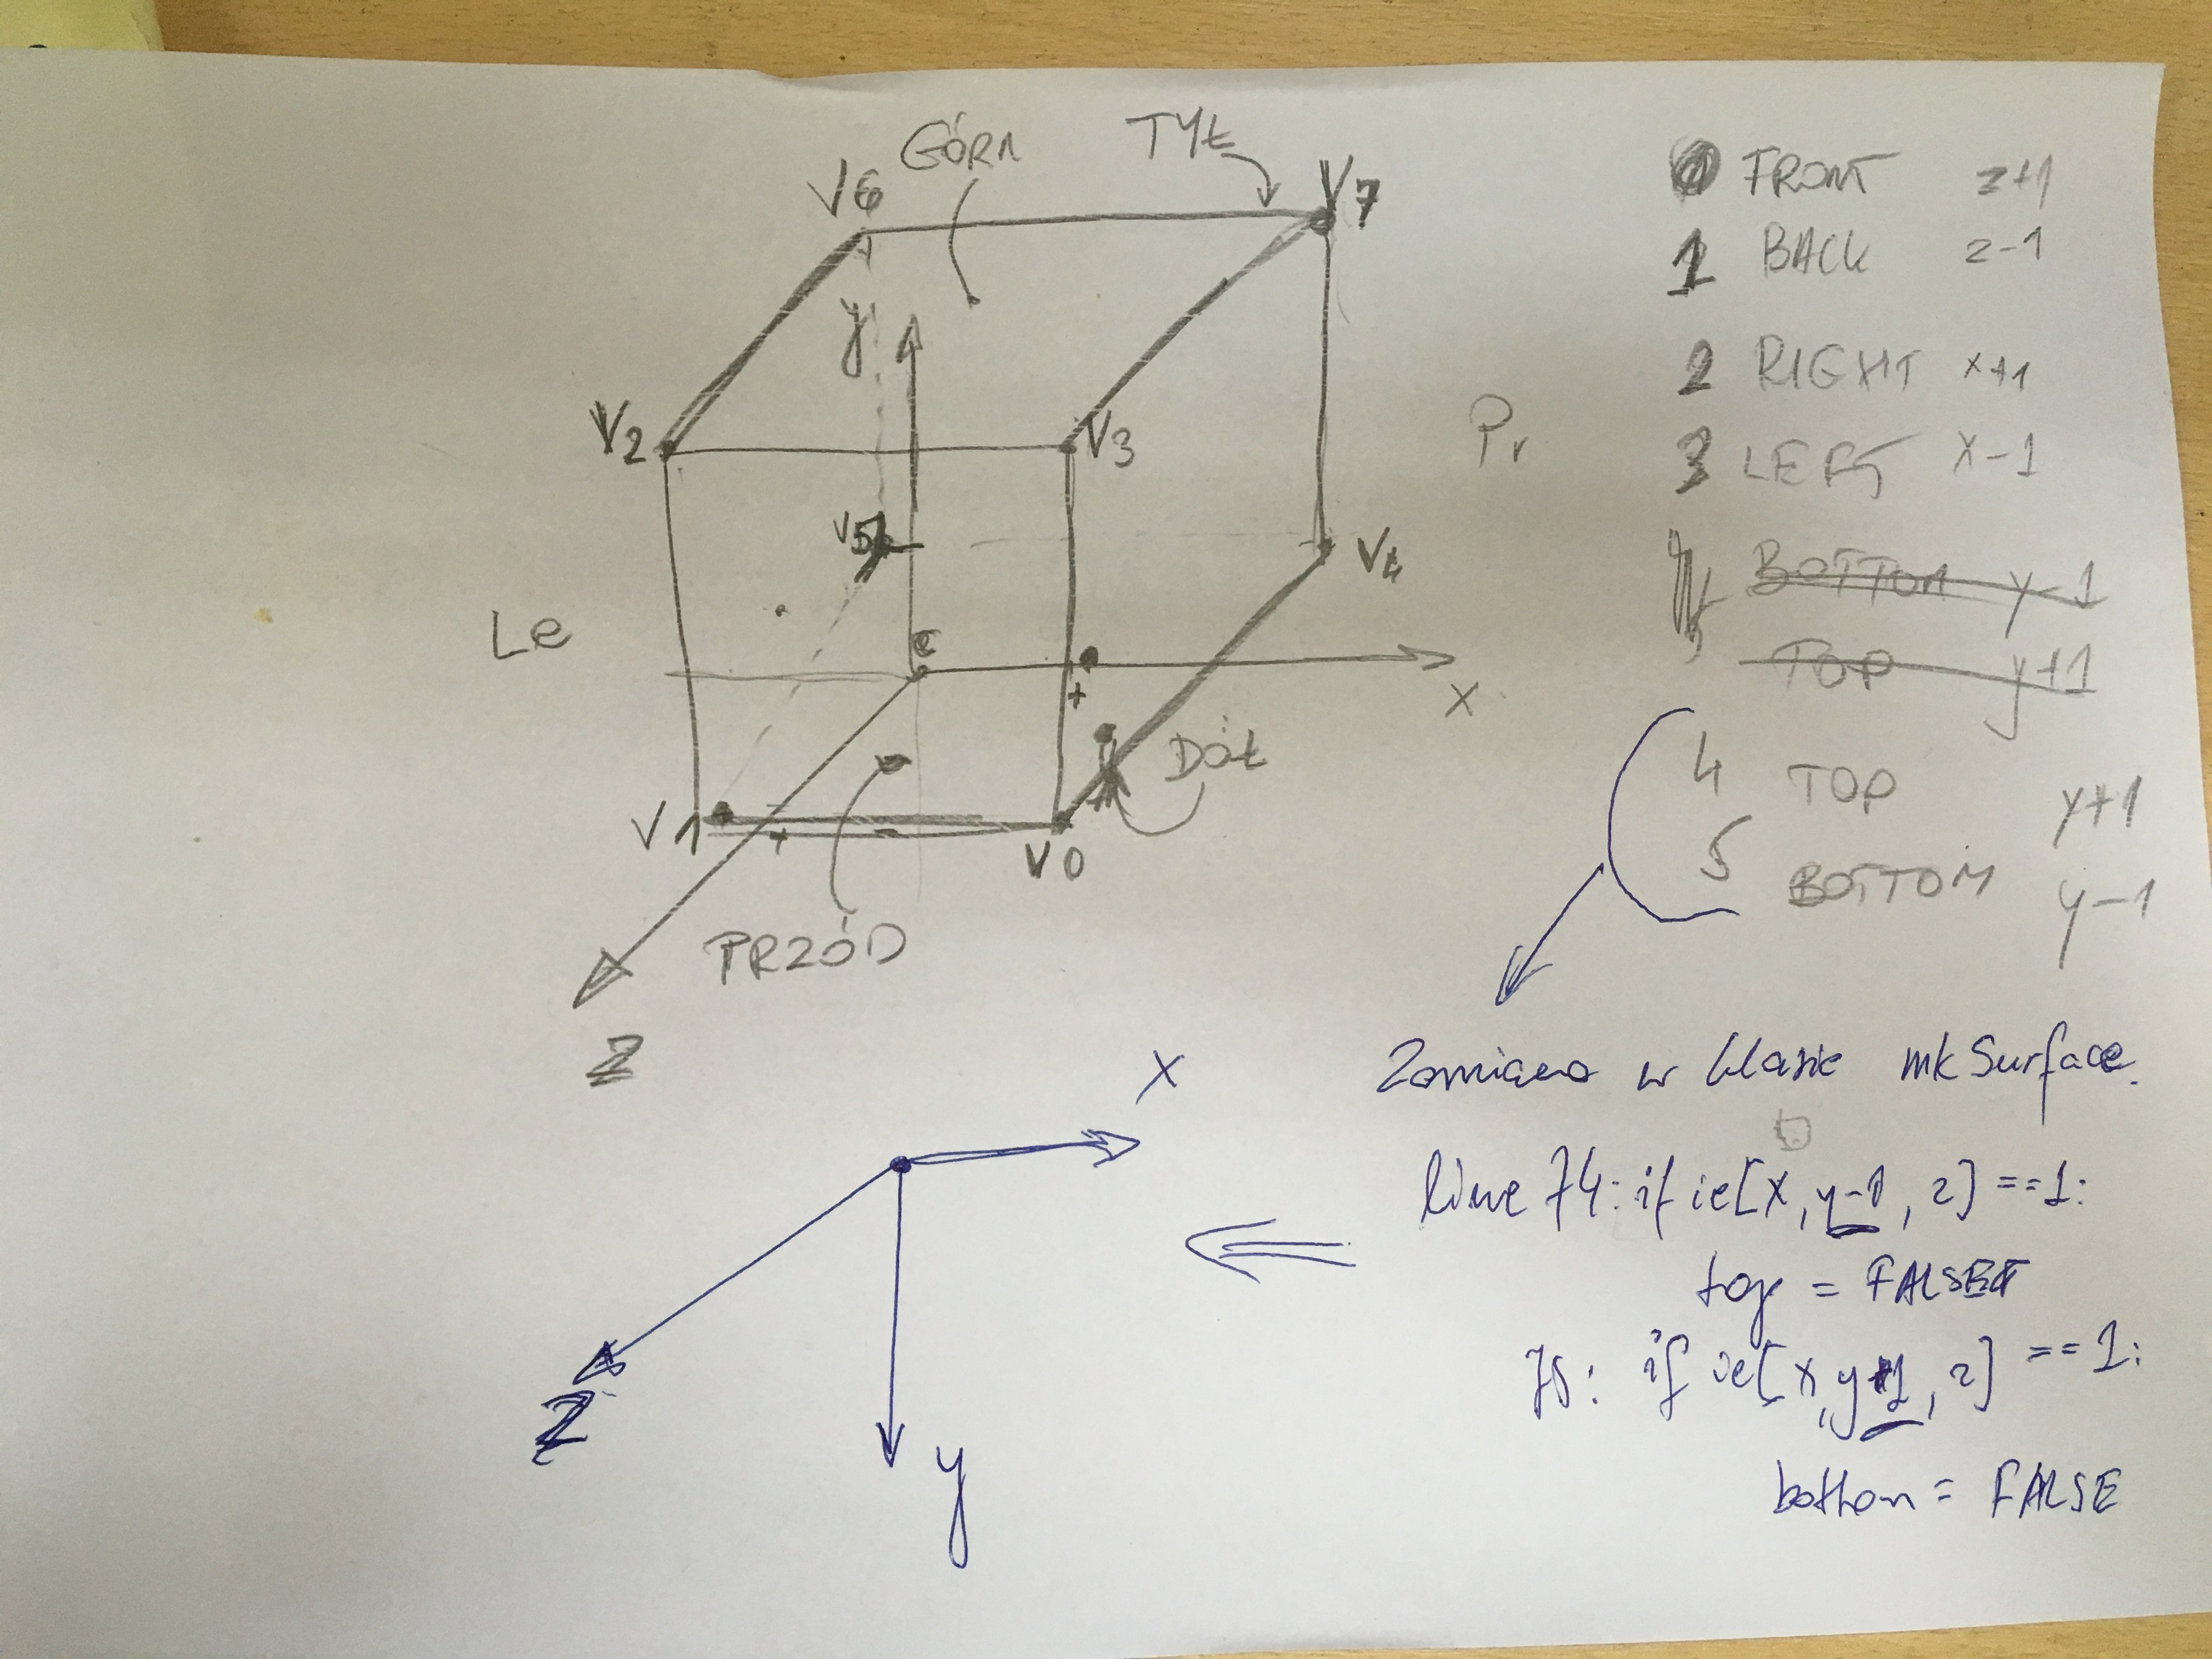 GÓRA
TYŁ
V6
V7
y
V2
V3
Pr
V5
V4
Le
c
x
+
DÓŁ
V1
+
V0
PRZÓD
Z
0 FRONT z+1
1 BACK z-1
2 RIGHT x+1
3 LEFT x-1
BOTTOM y-1
TOP y+1
4 TOP y+1
5 BOTTOM y-1
Zamiana w klasie mkSurface.
line 74: if ie[x, y-1, z] ==1:
top = FALSE
75: if ie[x, y+1, z] ==1:
bottom = FALSE
X
Z
y